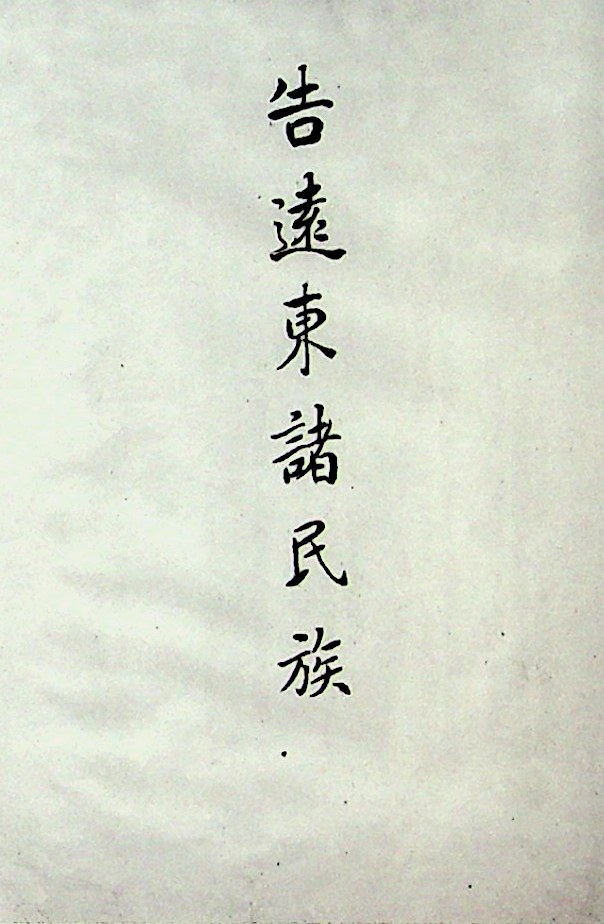 告遠東諸民族